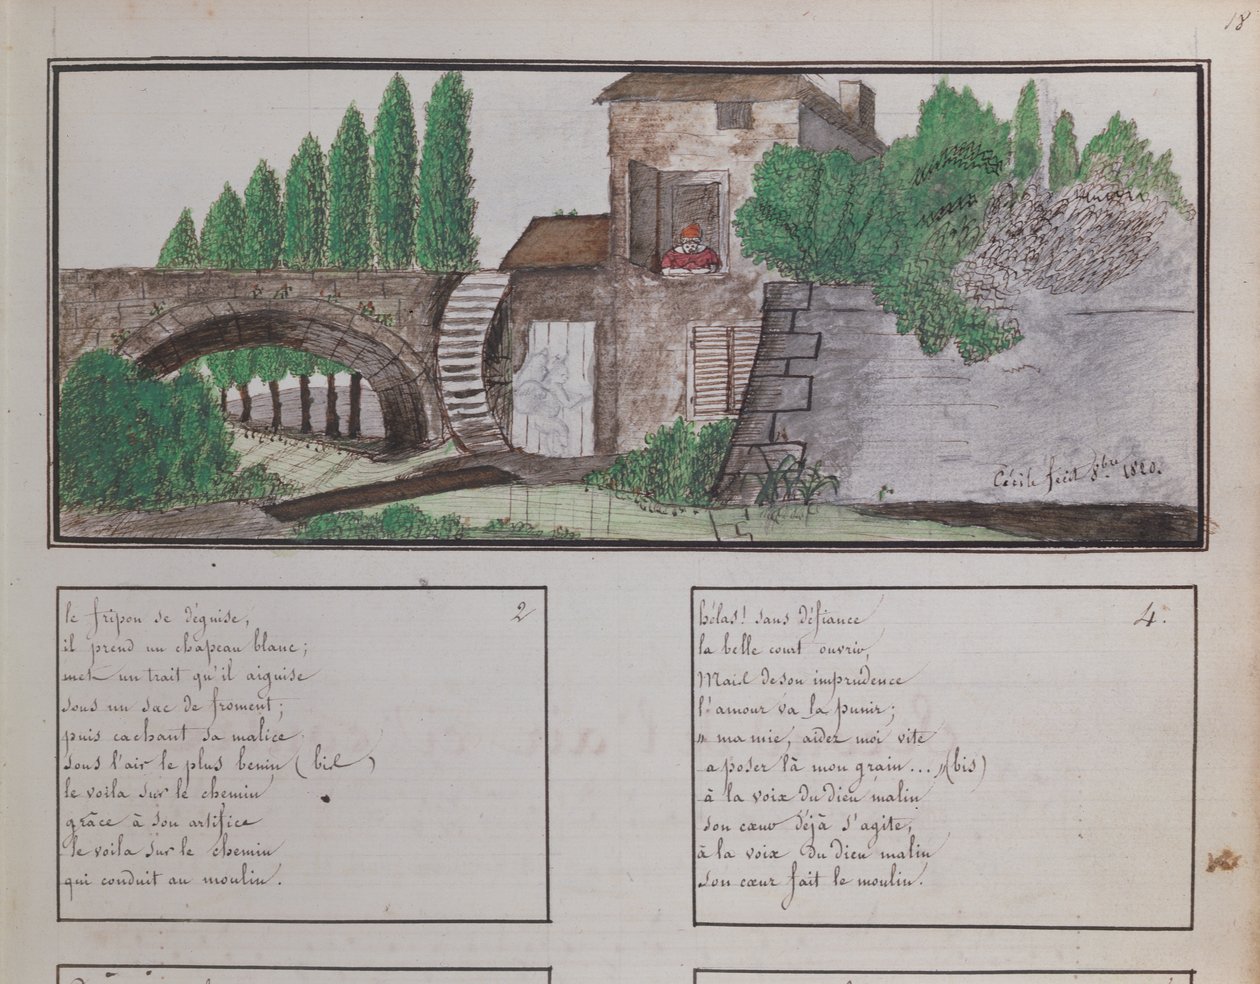 18
Cécile fecit 8bre 1820.
2
le fripon se déguise,
il prend un chapeau blanc;
met un trait qu'il aiguise
sous un sac de froment;
puis cachant sa malice
sous l'air le plus benin (bis)
le voila sur le chemin
grâce à son artifice
le voila sur le chemin
qui conduit au moulin.
4.
hélas! sans défiance
la belle court ouvrir,
Mais de son imprudence
l'amour va la punir;
" ma mie, aidez moi vite
a poser là mon grain... " (bis)
à la voix du dieu malin
son cœur déjà s'agite,
à la voix du dieu malin
son cœur fait le moulin.